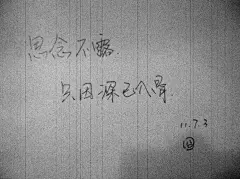 思念不露
只因深已入骨.
11.7.3